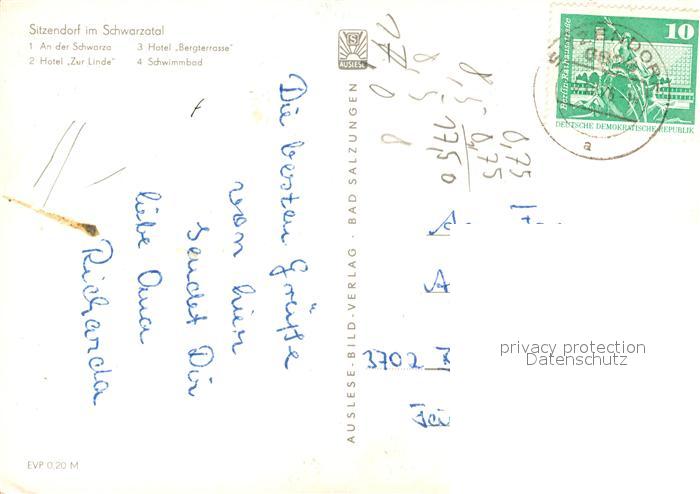 Sitzendorf im Schwarzatal
1 An der Schwarza 3 Hotel „Bergterrasse"
2 Hotel „Zur Linde" 4 Schwimmbad
Die besten Grüße
von hier
sendet Dir
liebe Oma
Richarda
EVP 0,20 M
AUSLESE
AUSLESE-BILD-VERLAG · BAD SALZUNGEN
0,75
0,75
8,5
17,50
10
Berlin-Rathausstraße
DEUTSCHE DEMOKRATISCHE REPUBLIK
a
A
3702
privacy protection
Datenschutz